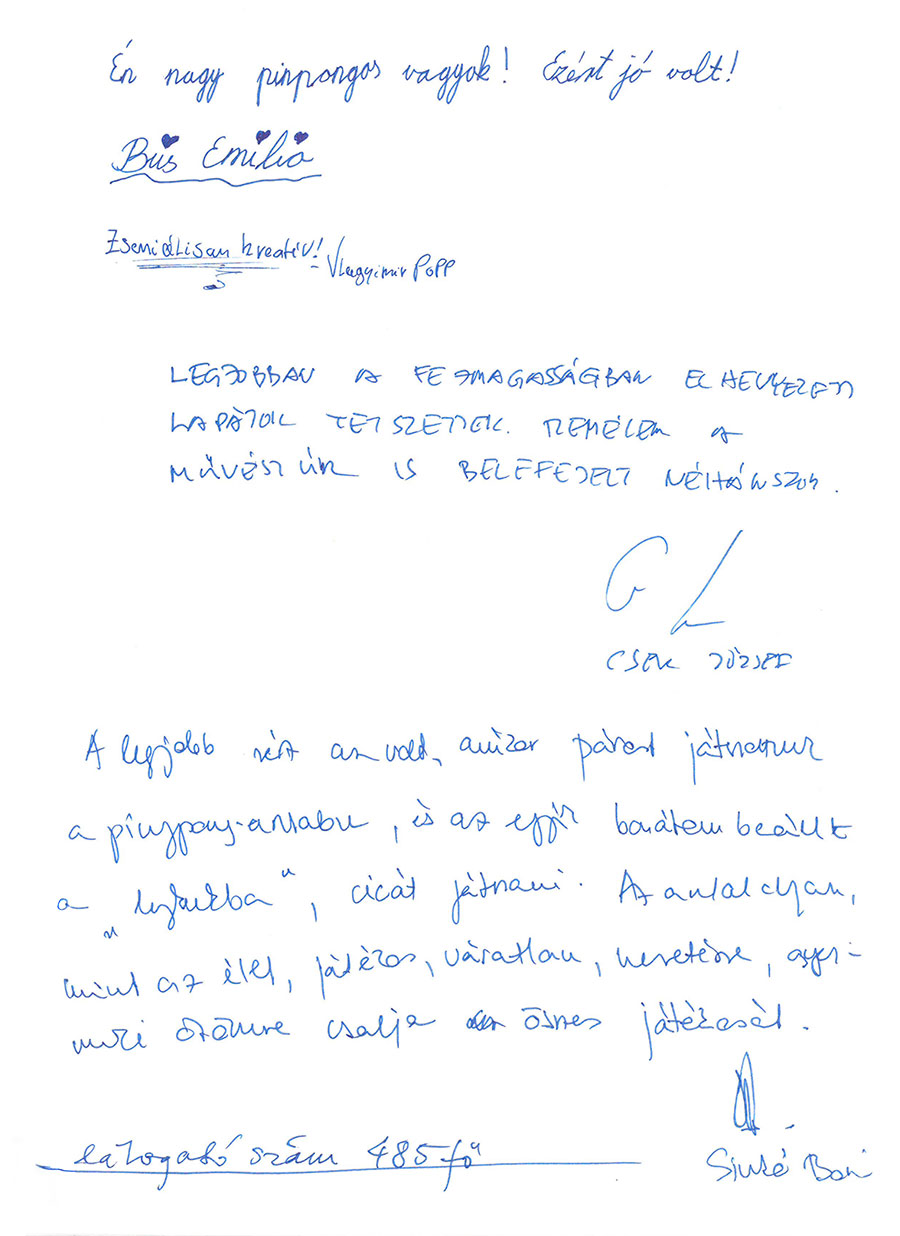 Én nagy pinpongos vagyok! Ezért jó volt!
Bús Emília
Zseniálisan kreatív! Vlagyimir Popp
LEGJOBBAN A FEJMAGASSÁGBAN ELHELYEZETT
LAPÁTOK TETSZETTEK. REMÉLEM A
MŰVÉSZ ÚR IS BELEFEJELT NÉHÁNYSZOR.
CSEK JÓZSEF
A legjobb rész az volt, amikor párost játszottunk
a pingpong-asztalon, és az egyik barátom beállt
a "lyukba", cicát játszani. Az asztal olyan,
mint az élet, játékos, váratlan, nevetésre,
örömre csalja összes játékosát.
látogató szám 485 fő